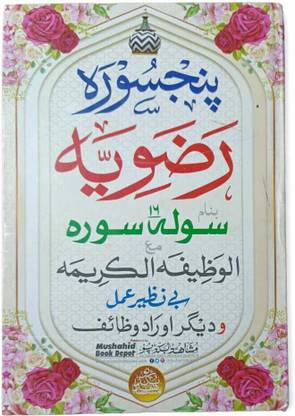 پنجسورہ
رضویہ
بنام
۱۶
سولہ سورہ
مع
الوظیفہ الکریمہ
بے نظیر عمل
و دیگر اوراد وظائف
Mushahid
Book Depot